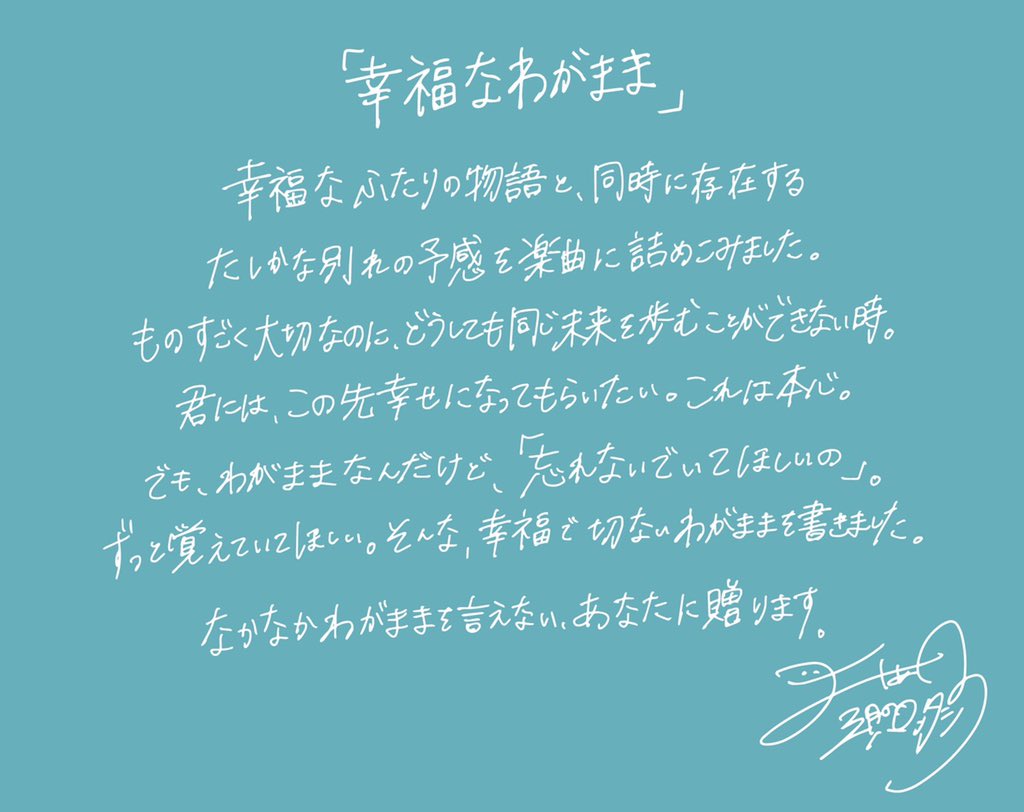 「幸福なわがまま」
幸福なふたりの物語と、同時に存在する
たしかな別れの予感を楽曲に詰めこみました。
ものすごく大切なのに、どうしても同じ未来を歩むことができない時。
君には、この先幸せになってもらいたい。これは本心。
でも、わがままなんだけど、「忘れないでいてほしいの」。
ずっと覚えていてほしい。そんな、幸福で切ないわがままを書きました。
なかなかわがままを言えない、あなたに贈ります。